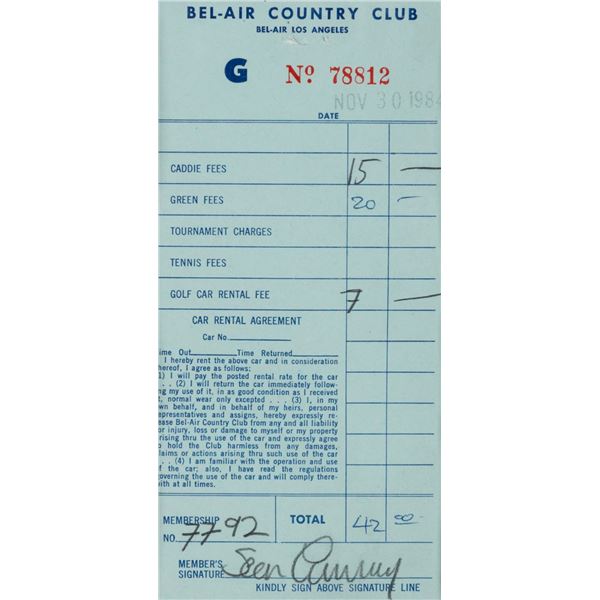 BEL-AIR COUNTRY CLUB
BEL-AIR LOS ANGELES
G Nº 78812
NOV 30 1984
DATE
CADDIE FEES 15 —
GREEN FEES 20 —
TOURNAMENT CHARGES
TENNIS FEES
GOLF CAR RENTAL FEE 7 —
CAR RENTAL AGREEMENT
Car No.
ime Out Time Returned
I hereby rent the above car and in consideration
hereof, I agree as follows:
1) I will pay the posted rental rate for the car
. . . (2) I will return the car immediately follow-
ng my use of it, in as good condition as I received
t, normal wear only excepted . . . (3) I, in my
wn behalf, and in behalf of my heirs, personal
epresentatives and assigns, hereby expressly re-
ease Bel-Air Country Club from any and all liability
or injury, loss or damage to myself or my property
arising thru the use of the car and expressly agree
o hold the Club harmless from any damages,
laims or actions arising thru such use of the car
. . . (4) I am familiar with the operation and use
f the car; also, I have read the regulations
overning the use of the car and will comply there-
ith at all times.
MEMBERSHIP
NO. 7792 TOTAL 42 00
MEMBER'S
SIGNATURE Sean Connery
KINDLY SIGN ABOVE SIGNATURE LINE